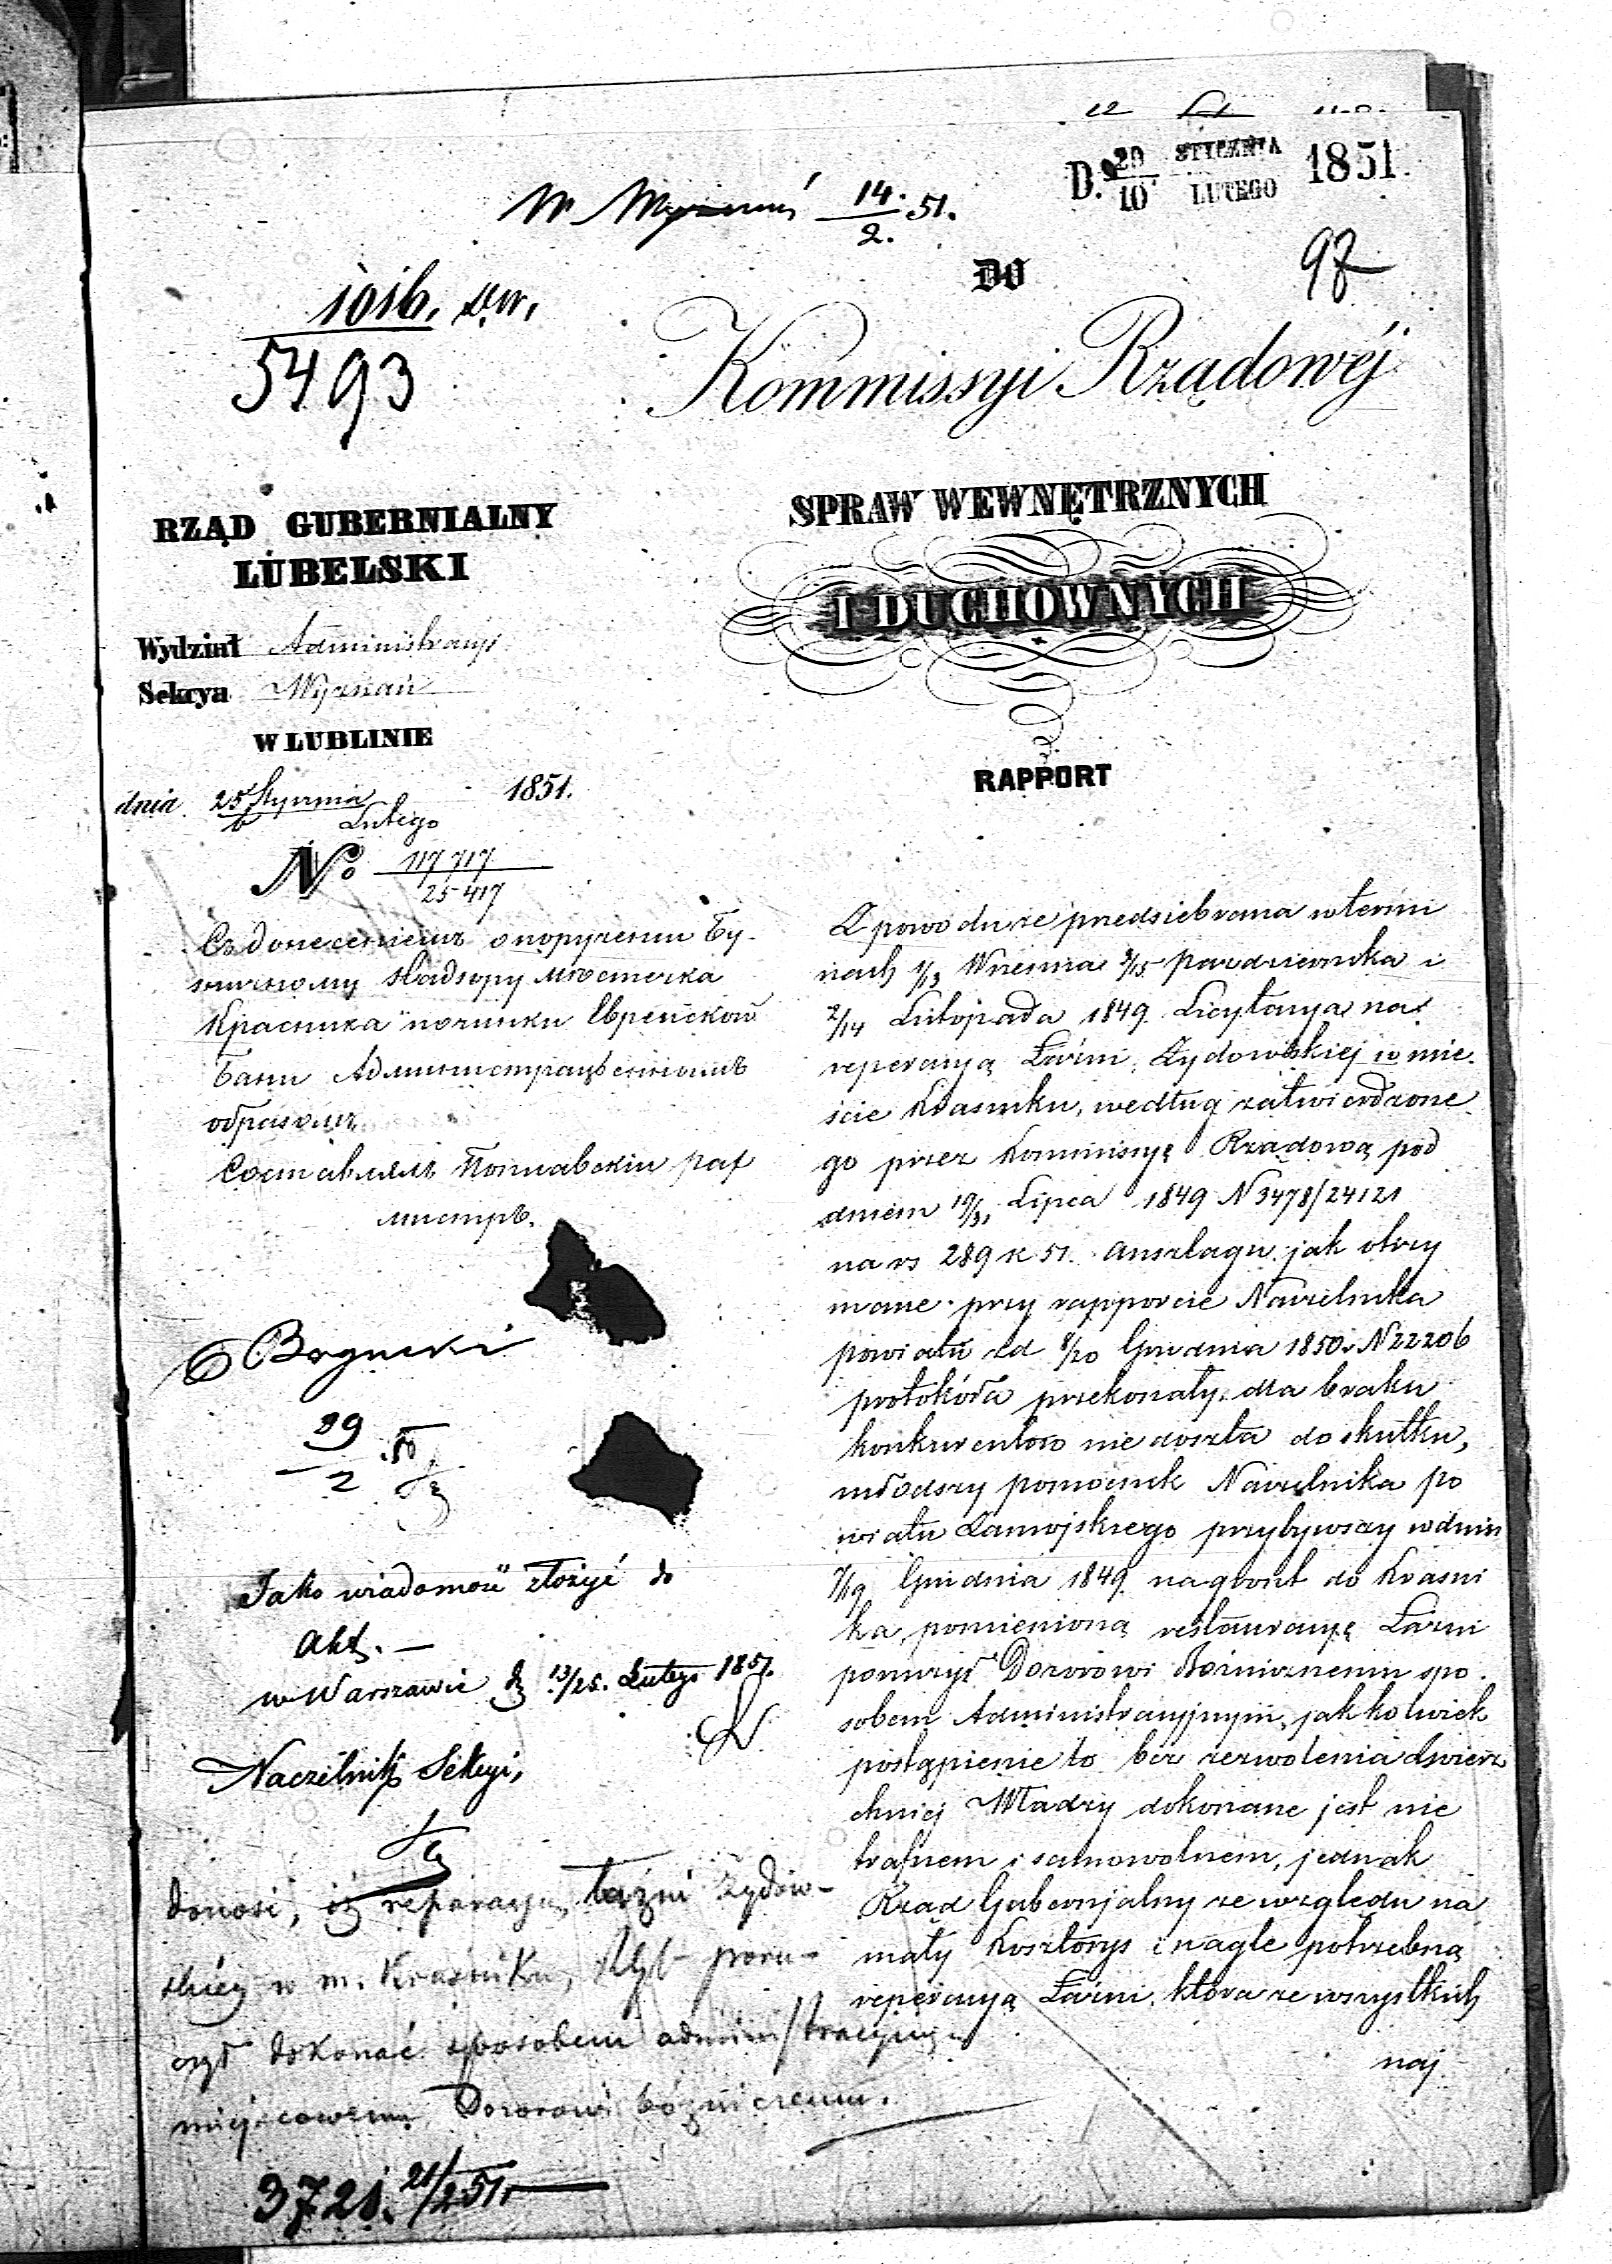 D. 29/10 STYCZNIA/LUTEGO 1851.
14./2. 51.
97
1016.
5493
DO
Kommissyi Rządowéj
SPRAW WEWNĘTRZNYCH
I DUCHOWNYCH
RAPPORT
RZĄD GUBERNIALNY
LUBELSKI
Wydział Administracyi
Sekcya Wyznań
W LUBLINIE
dnia 25 Stycznia/6 Lutego 1851.
No 117717/25417
Съ донесеніемъ о порученіи Бу-
жничному Надзору мѣстечка
Красника починки Еврейской
Бани Административнымъ
образомъ
Составлялъ
Jako wiadomość złożyć do
Akt. —
w Warszawie d 13/25. Lutego 1851.
Naczelnik Sekcyi,
donosi, iż reparacyą łaźni żydow-
skiéj w m. Kraśniku, poru-
czył dokonać sposobem administracyjnym
miejscowemu Dozorowi bóżniczemu.
3721. 21/2 51.
Z powodu że przedsiebrana w termi
nach 1/13 Września 3/15 Pazdziernika i
2/14 Listopada 1849 Licytacya na
reperacyą Łaźni Żydowskiej w mie
ście Krasniku, według zatwierdzone
go przez Kommissyę Rządową pod
dniem 19/31 Lipca 1849 N 3478/24121
na rs 289 k 51. anszlagu jak otrzy
mane przy rapporcie Naczelnika
powiatu z d 8/20 Grudnia 1850 r N 22206
protokóła przekonały, dla braku
konkurentów nie doszła do skutku,
młodszy pomocnik Naczelnika po
wiatu Zamojskiego przybywszy w dniu
7/19 Grudnia 1849 na grunt do Krasni
ka, pomienioną restauracyę Łaźni
poruczył Dozorowi Bożnicznemu spo
sobem Administracyjnym, jakkolwiek
postąpienie to bez zezwolenia Zwierz
chniej Władzy dokonane jest nie
trafnem i samowolnem, jednak
Rząd Gubernjalny ze względu na
mały Kosztorys i nagle potrzebną
reperacyą Łaźni, która ze wszystkich
naj